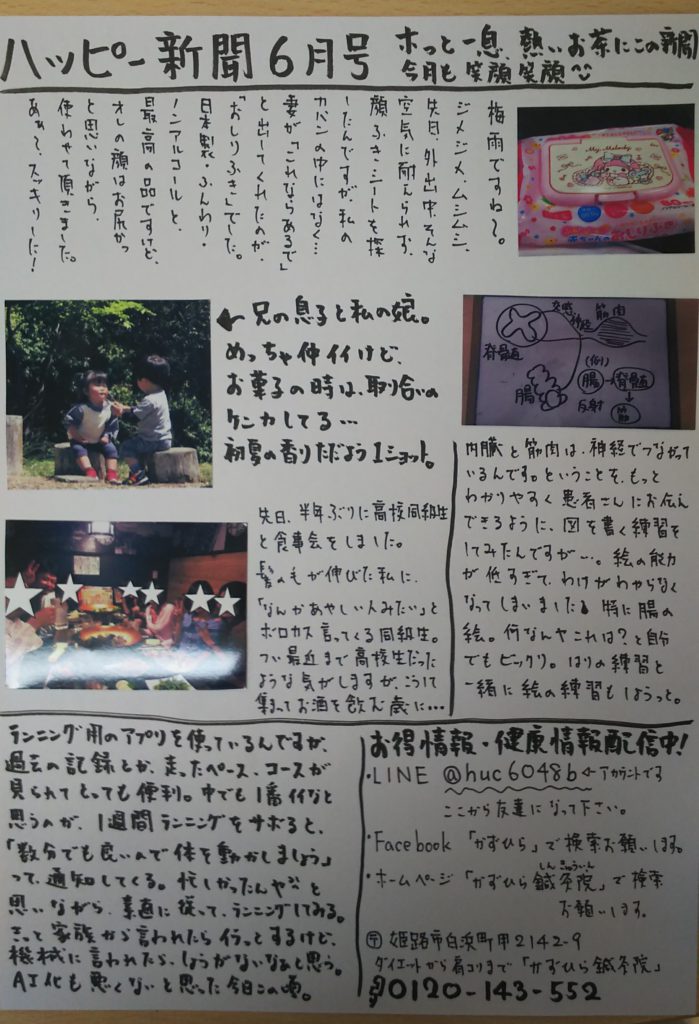 ハッピー新聞6月号
ホっと一息、熱いお茶にこの新聞
今月も笑顔笑顔
梅雨ですね〜。
ジメジメ、ムシムシ、
先日、外出中、そんな
空気に耐えられず、
顔ふきシートを探
したんですが、私の
カバンの中にはなく…
妻が「これならあるで」
と出してくれたのが、
「おしりふき」でした。
日本製・ふんわり・
ノンアルコールと、
最高の品ですけど、
オレの顔はお尻かっ
と思いながら、
使わせて頂きました。
あぁ〜、スッキリーした!
My Melody
おしりふき
←兄の息子と私の娘。
めっちゃ仲イイけど、
お菓子の時は、取り合いの
ケンカしてる…
初夏の香りただよう1ショット。
交感神経
筋肉
脊髄
腸
(例)
腸→脊髄
↓
筋
反射
内臓と筋肉は、神経でつながって
いるんです。ということを、もっと
わかりやすく患者さんにお伝え
できるように、図を書く練習を
してみたんですが…。絵の能力
が低すぎて、わけがわからなく
なってしまいました。特に腸の
絵。何なんやこれは?と自分
でもビックリ。はりの練習と
一緒に絵の練習もしようっと。
先日、半年ぶりに高校同級生
と食事会をしました。
髪の毛が伸びた私に、
「なんかあやしい人みたい」と
ボロカス言ってくる同級生。
つい最近まで高校生だった
ような気がしますが、こうして
集まってお酒を飲む歳に…
ランニング用のアプリを使っているんですが、
過去の記録とか、走ったペース、コースが
見られてとっても便利。中でも1番イイなと
思うのが、1週間ランニングをサボると、
「数分でも良いので体を動かしましょう」
って、通知してくる。忙しかったんやぶと
思いながら、素直に従って、ランニングしてみる。
きっと家族から言われたらイラっとするけど、
機械に言われたら、しょうがないなぁと思う。
AI化も悪くないと思った今日この頃。
お得情報・健康情報配信中!
・LINE @huc6048b ←アカウントです
ここから友達になって下さい。
・Facebook「かずひら」で検索お願いします。
・ホームページ「かずひら鍼灸院」で検索
しんきゅういん
お願いします。
〒姫路市白浜町甲2142-9
ダイエットから肩コリまで「かずひら鍼灸院」
0120-143-552